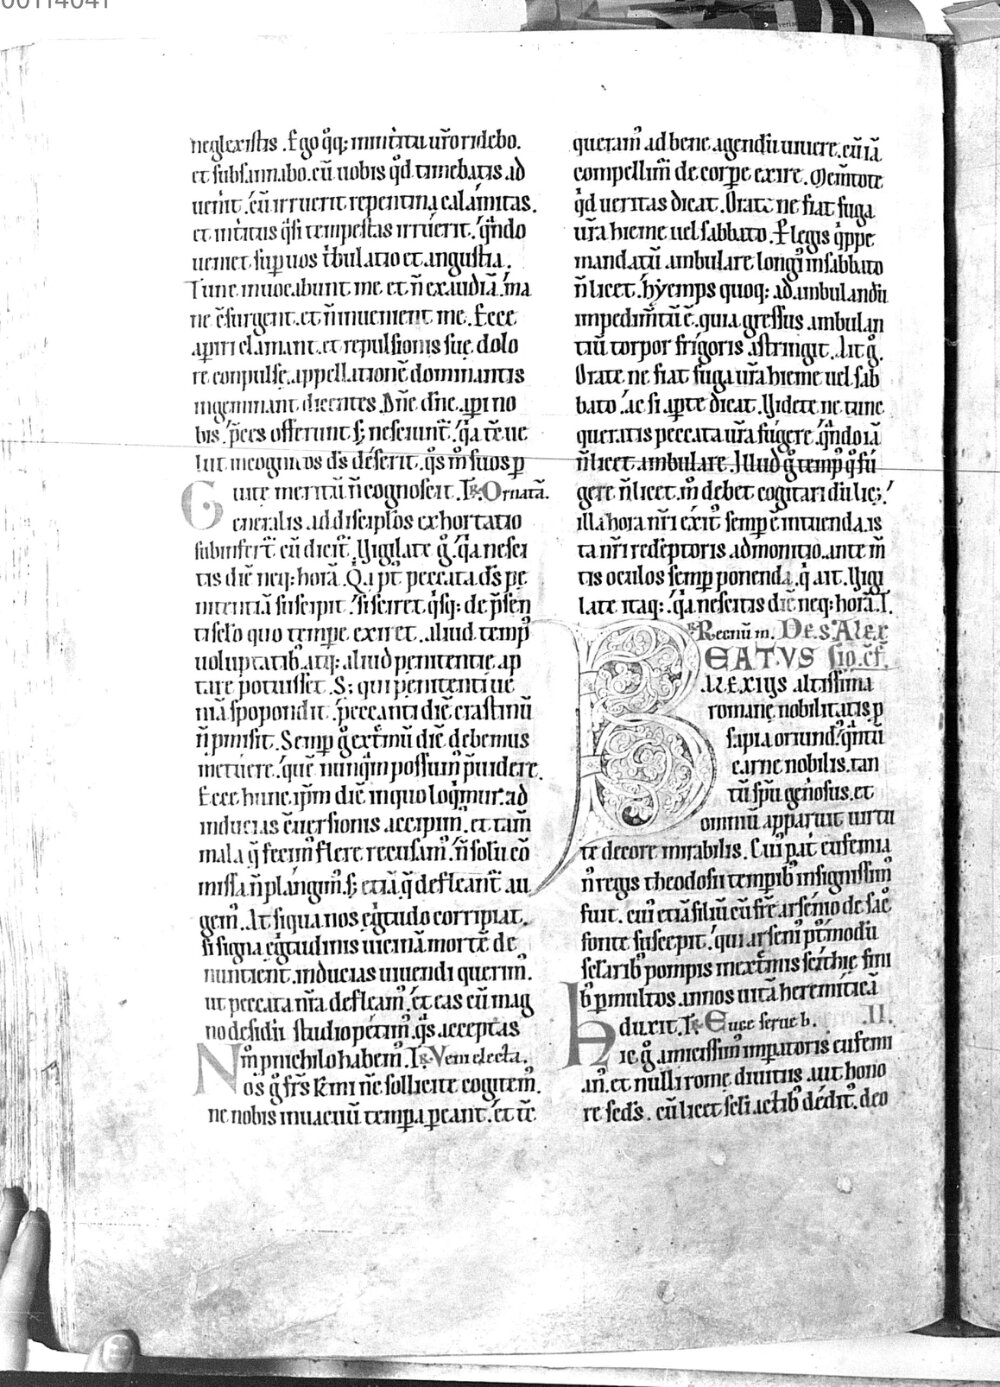 neglexistis. Ego q̊q; ininteritu ur̄o ridebo.
et subsannabo. cū uobis q̊d timebatis ad
uenīt. cū irruerit repentina calamitas.
et interitus q̊si tempestas irruerit. q̄ndo
uenerit sup̄ uos t̄bulatio et angustia.
Tunc inuocabunt me et n̄ exaudiā. ma
ne c̄surgent. et n̄ inuenient me. Ecce
aperiri clamant. et repulsionis suę dolo
re conpulsę. appellationē dominantis
ingeminant dicentes. Dn̄e dn̄e. aperi no
bis. p̄ces offerunt s; nesciunt. q̄a uelle
lut incognitos d̄s deserit. q̄s m̄ suos p
uitę meritū n̄ cognoscit. R. Ornatā.
Generalis ad disciplos exhortatio
subinfert̄ cū dicit̄. Uigilate g̊. q̄a nesci
tis diē neq; horā. Q̄i p̄t peccata d̄s pe
nitentiā suscipit. si sciret q̄sq; de p̄sen
ti sc̄lo quo tempe exiret. aliud temp̄
uoluptatib; atq; aliud penitentię ap
tare potuisset. S; qui penitenti ue
niā spopondit. peccanti diē crastinū
n̄ pmisit. Semp̄ g̊ extmū diē debemus
metuere. quē nunq̄m possum̄ p̄uidere.
Ecce hunc ip̄m diē in quo loq̊mur. ad
inducias c̄uersionis accipim̄. et tam̄
mala q̄ fecim̄ flere recusam̄. n̄ solū cō
missa n̄ plangim̄. s; etiā q̄ defleant̄ au
gem̄. At si qua nos egritudo corripiat.
si signa egritudinis uicinā mortē de
nuntient. inducias uiuendi querim̄.
ut peccata nr̄a defleam̄. et eas cū mag
no desiderii studio petim̄. q̄s acceptas
m̄ p nichilo habem̄. R. Veni electa.
Nos g̊ frs̄ kmi n̄c sollicite cogitem̄.
ne nobis in uacuū tempa peant. et tc̄
queram̄ ad bene agendū uiuere. cū iā
compellim̄ de corpe exire. Mem̄tote
q̊d ueritas dicat. Orate ne fiat fuga
ur̄a hieme uel sabbato. P legis q̊ppe
mandatū ambulare longi̊ in sabbato
n̄ licet. hyemps quoq; ad ambulandū
impedim̄tū ē. quia gressus ambulan
tiū torpor frigoris astringit. Ait g̊.
Orate ne fiat fuga ur̄a hieme uel sab
bato. ac si apte dicat. Uidete ne tunc
queratis peccata ur̄a fugere. q̄ndo iā
n̄ licet ambulare. Illud g̊ temp̄ q̊ fu
gere n̄ licet. m̄ debet cogitari dū licȝ.
illa hora nr̄i exit̄ semp ē intuenda. is
ta nr̄i redēptoris admonitio. ante m̄
tis oculos semp ponenda. q̊ ait. Uigi
late itaq; q̄a nescitis diē neq; horā. I.
R. Regnū m. De. s. Alex
BEATUS sio. c̄f.
ALEXIUS altissima
romanę nobilitatis p
sapia oriund̄. q̄ntū
carne nobilis. tan
tū sp̄u gen̄osus. et
omniū apparuit uirtu
te decore mirabilis. Cui̊ pat̄ eufemia
n̄ regis theodosii tempib; insignissim̄
fuit. cui̊ etiā filiū cū fr̄e arsenio de sac̊
fonte suscepit. qui arseni̊ ptmodū
sc̄larib; pompis in extremis scithię fini
b; p multos annos uitā heremiticā
duxit. R. Euge serue b. II.
Hic g̊ amicissim̄ imp̄atoris eufemi
an̄. et nulli romę diuitiis. aut hono
re scd̄s. cū licet sc̄li actib; dedit̄. deo